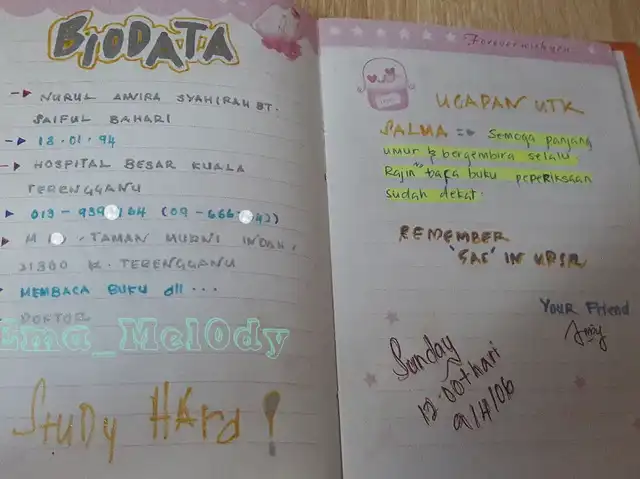 BIODATA
NURUL AMIRA SYAHIRAH BT.
SAIFUL BAHARI
18.01.94
HOSPITAL BESAR KUALA
TERENGGANU
TAMAN MURNI INDAH,
21300 K. TERENGGANU
MEMBACA BUKU dll...
DOKTOR
Ema_Mel0dy
STUDY HARD!
Forever with you
UCAPAN UTK
SALMA => Semoga panjang
umur & bergembira selalu.
Rajin² baca buku peperiksaan
sudah dekat.
REMEMBER
'5AS' IN UPSR
YOUR Friend
Sunday
12.00 t.hari
9/4/06